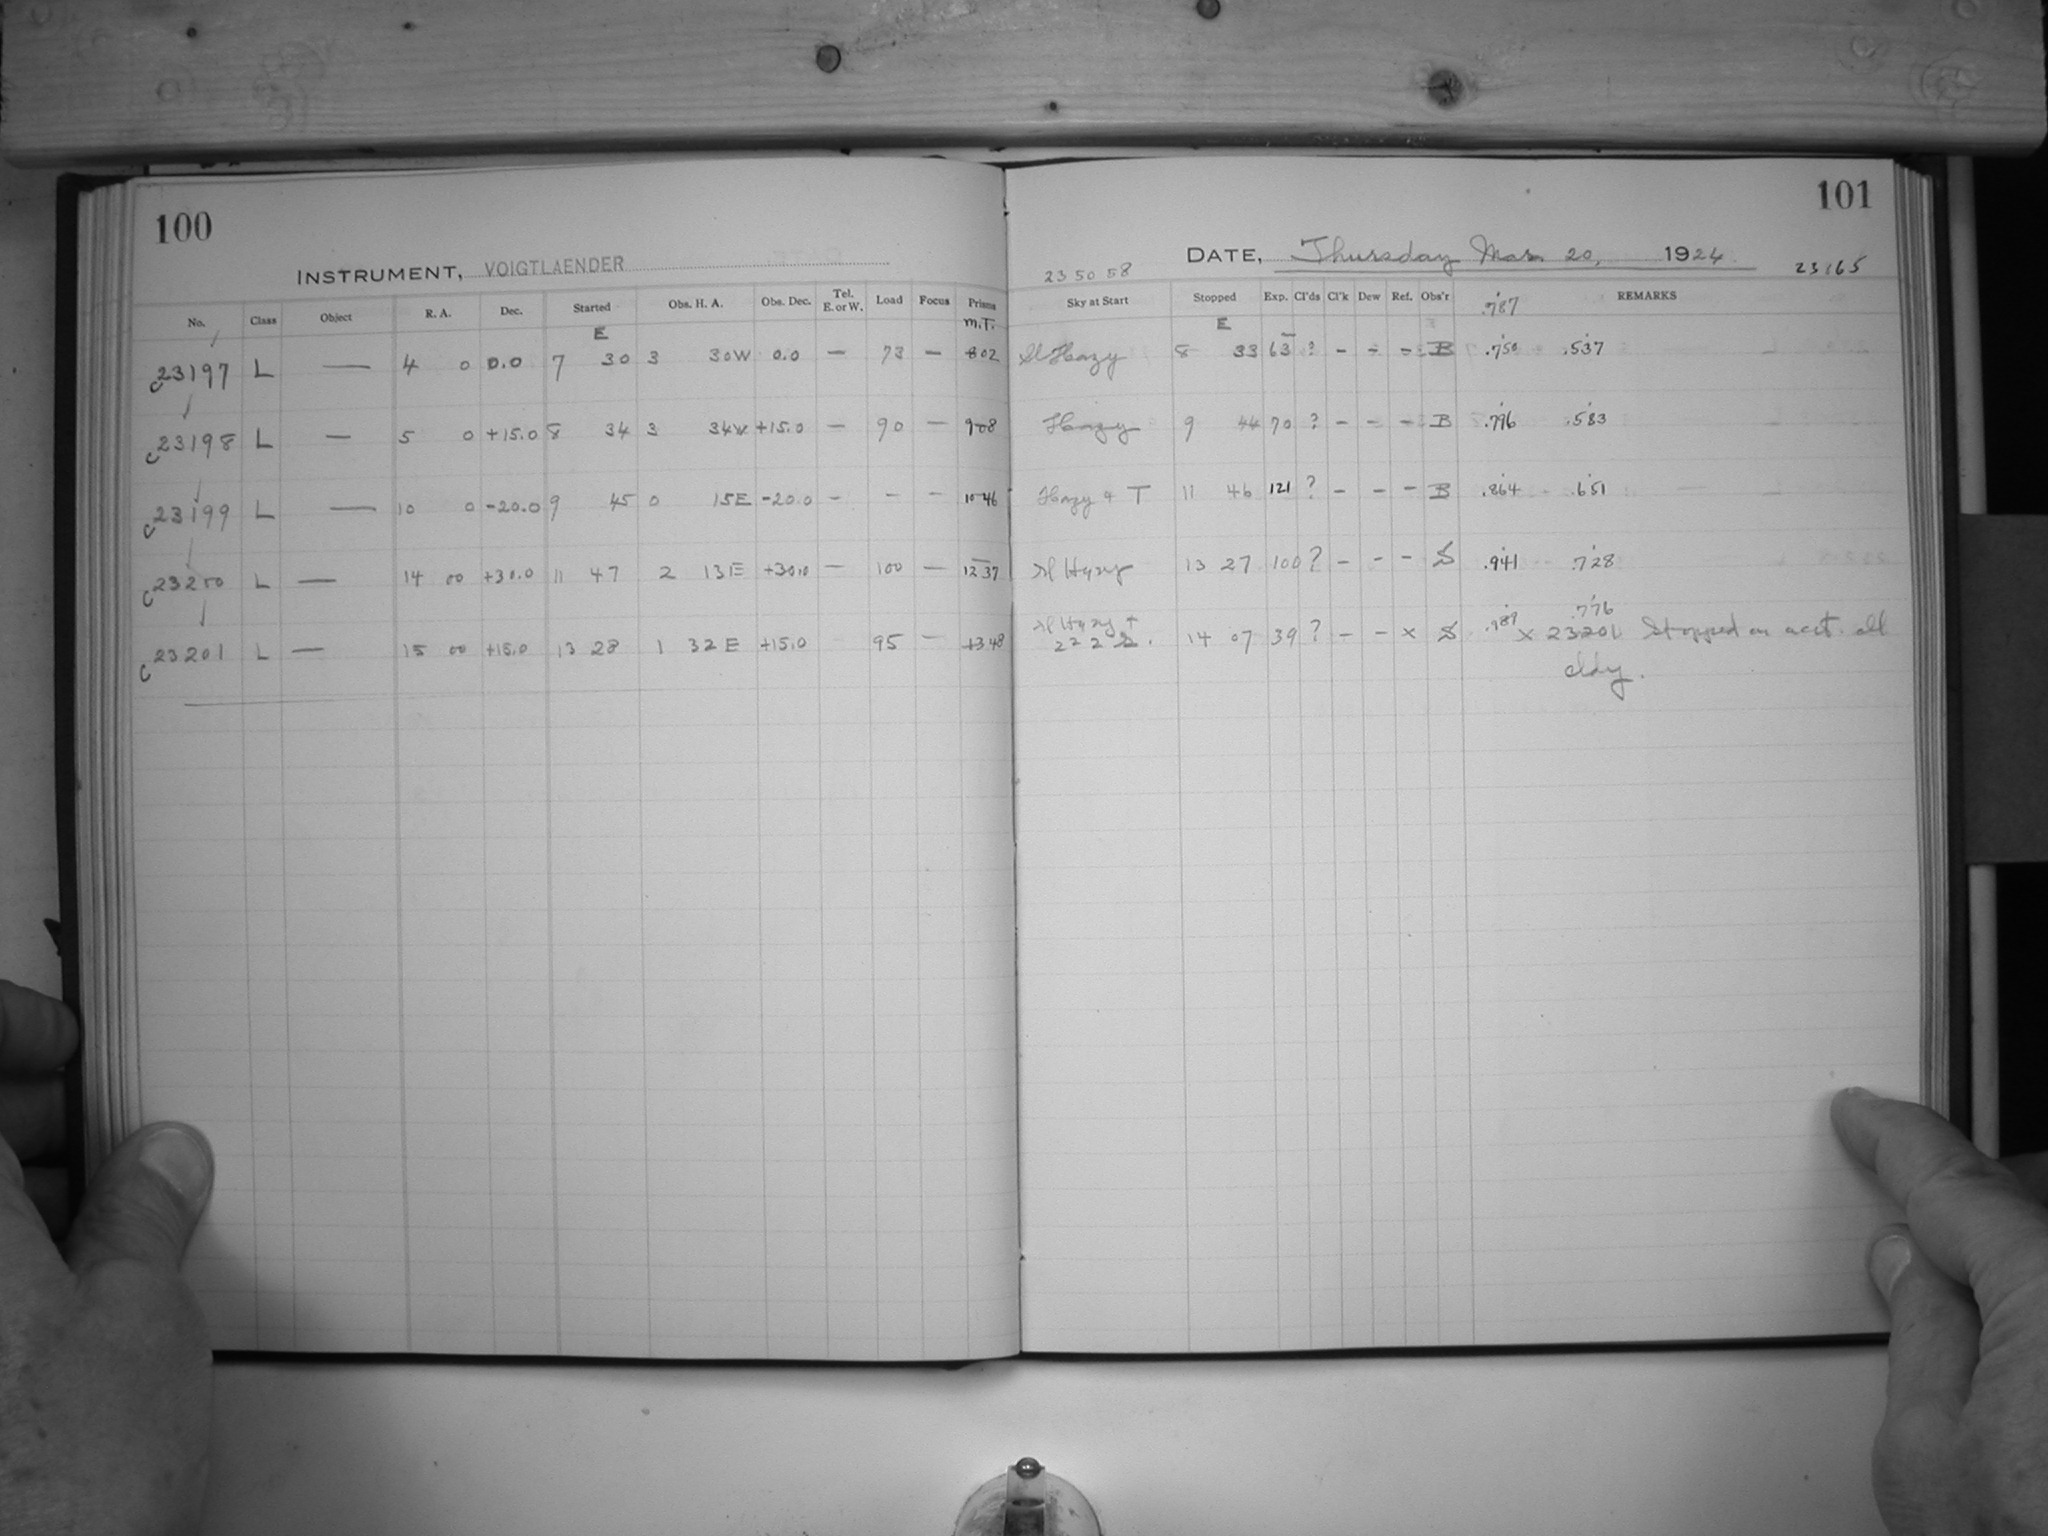 100
INSTRUMENT, VOIGTLAENDER
No. Class Object R. A. Dec. Started Obs. H. A. Obs. Dec. Tel. E. or W. Load Focus Prisms
E m.T.
c23197 L — 4 0 0.0 7 30 3 30W 0.0 — 73 — 802
c23198 L — 5 0 +15.0 8 34 3 34W +15.0 — 90 — 908
c23199 L — 10 0 -20.0 9 45 0 15E -20.0 - - - 10 46
c23200 L — 14 00 +30.0 11 47 2 13E +30.0 — 100 — 12 37
c23201 L — 15 00 +15.0 13 28 1 32 E +15.0 95 — 13 48
101
DATE, Thursday Mar 20, 1924
23 50 58 23165
Sky at Start Stopped Exp. Cl'ds Cl'k Dew Ref. Obs'r REMARKS
E .787
Sl Hazy 8 33 63 ? - - - B .750 .537
Hazy 9 44 70 ? - - - B .796 .583
Hazy + T 11 46 121 ? - - - B .864 .651
Sl Hazy 13 27 100 ? - - - S .941 .728
Sl Hazy + .989 .776
2 2 2 2. 14 07 39 ? - - x S x 23201 Stopped on acct. all
cldy.